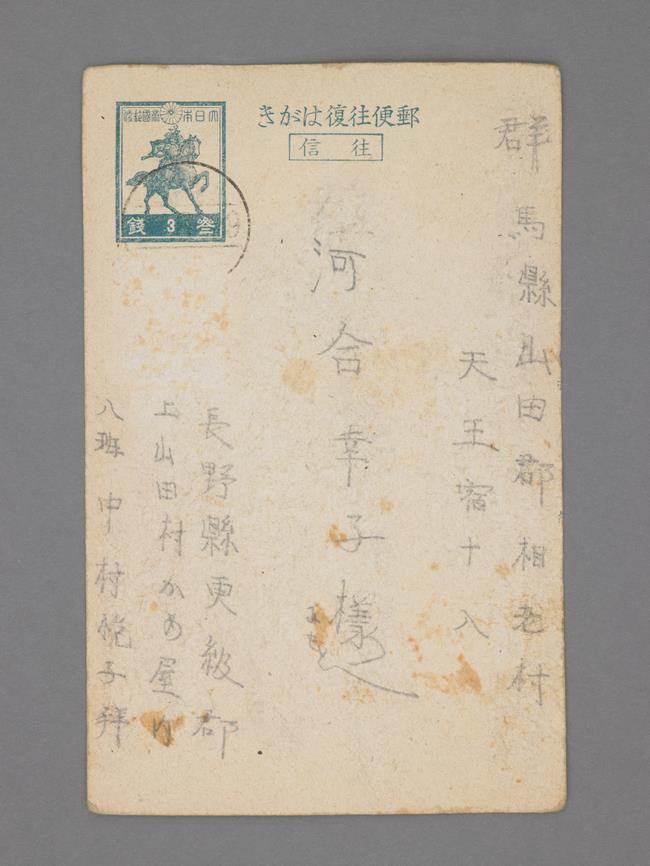 郵便往復はがき
往信
大日本帝國郵便
參 3 錢
群馬縣山田郡相老村
天王宿十八
河合幸子様
長野縣更級郡
上山田村かめ屋内
八班中村悦子拜